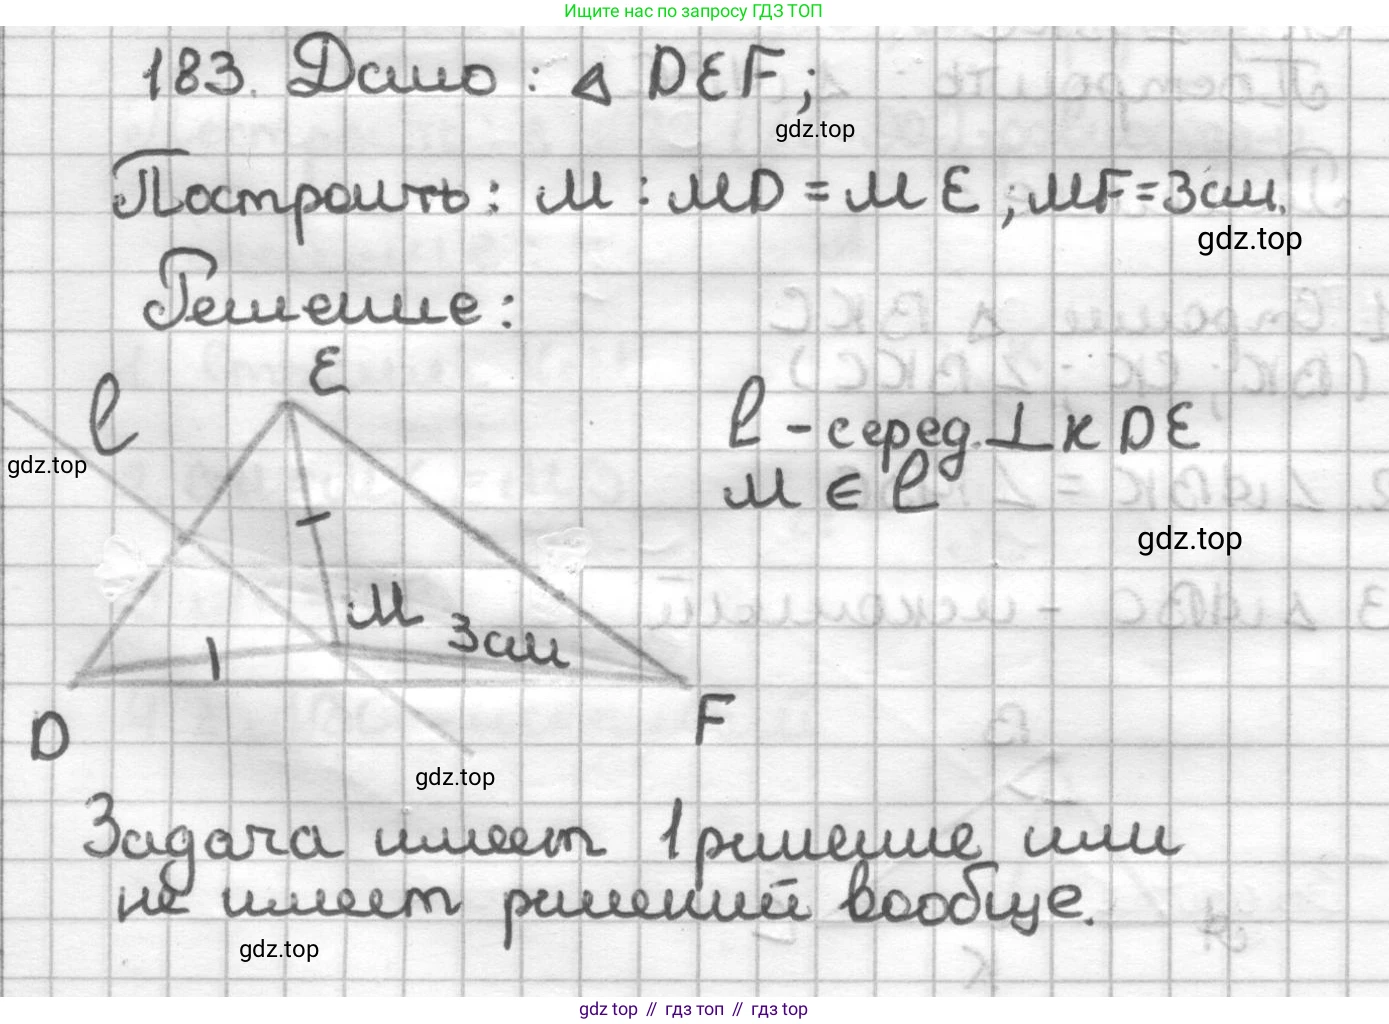 Ищите нас по запросу ГДЗ ТОП
183. Дано: △ DEF;
gdz.top
Построить: М : МD = М Е ; МF = 3 см.
gdz.top
Решение:
E
l
l - серед. ⊥ к DE
gdz.top
М ∈ l
gdz.top
М
3 см
D
F
gdz.top
Задача имеет 1 решение или
не имеет решений вообще.
gdz.top
gdz top // гдз топ // gdz top